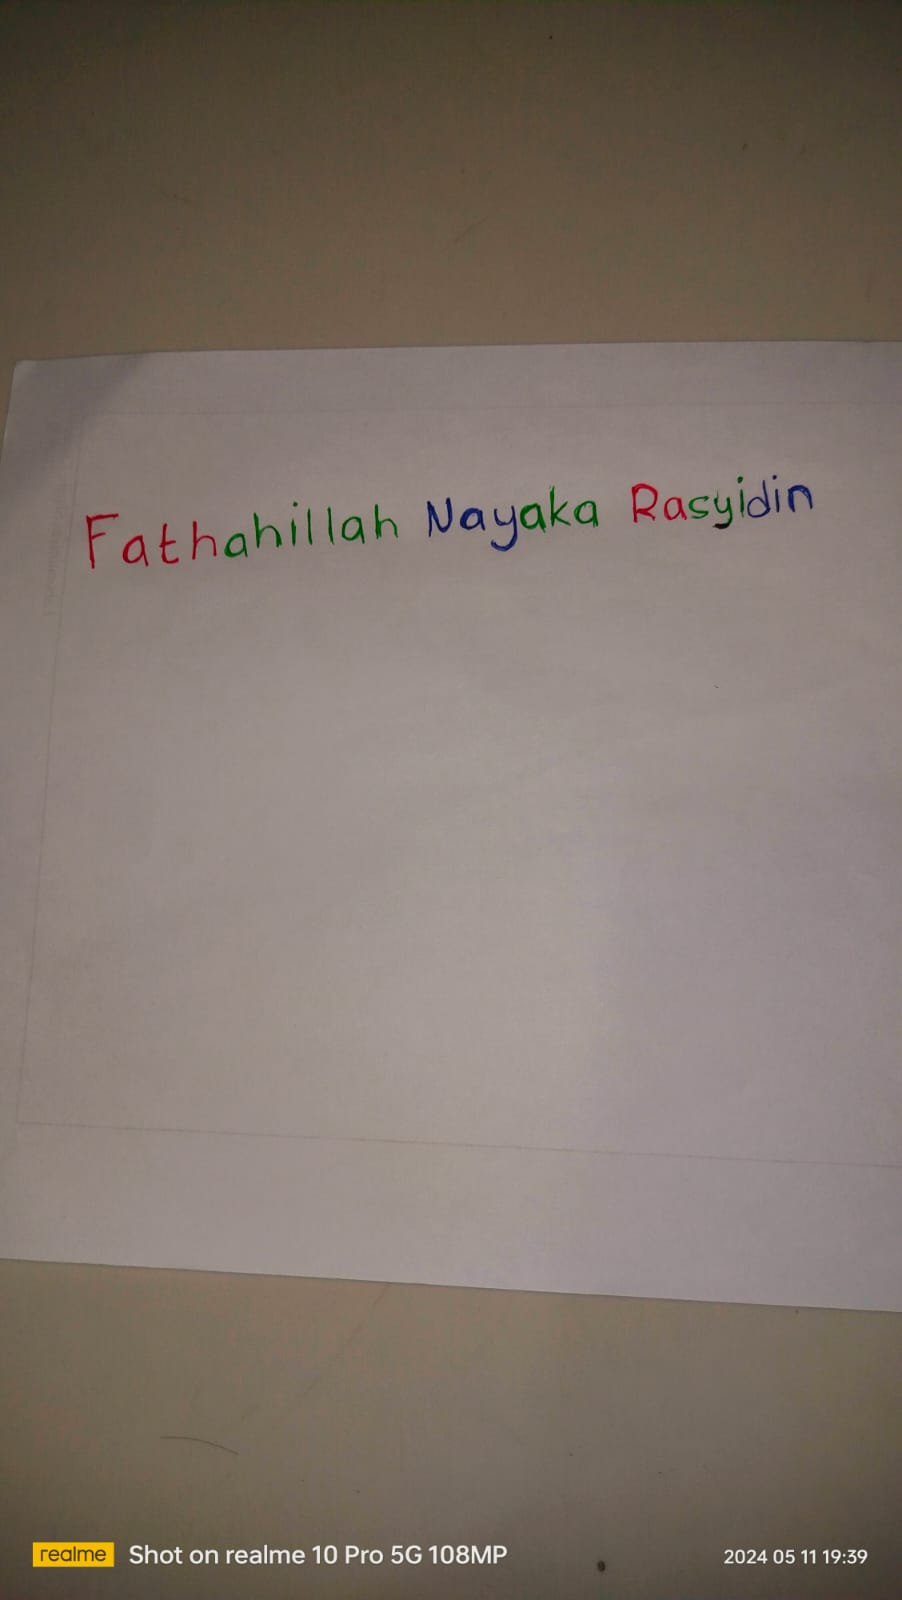 Fathahillah Nayaka Rasyidin
realme Shot on realme 10 Pro 5G 108MP 2024 05 11 19:39